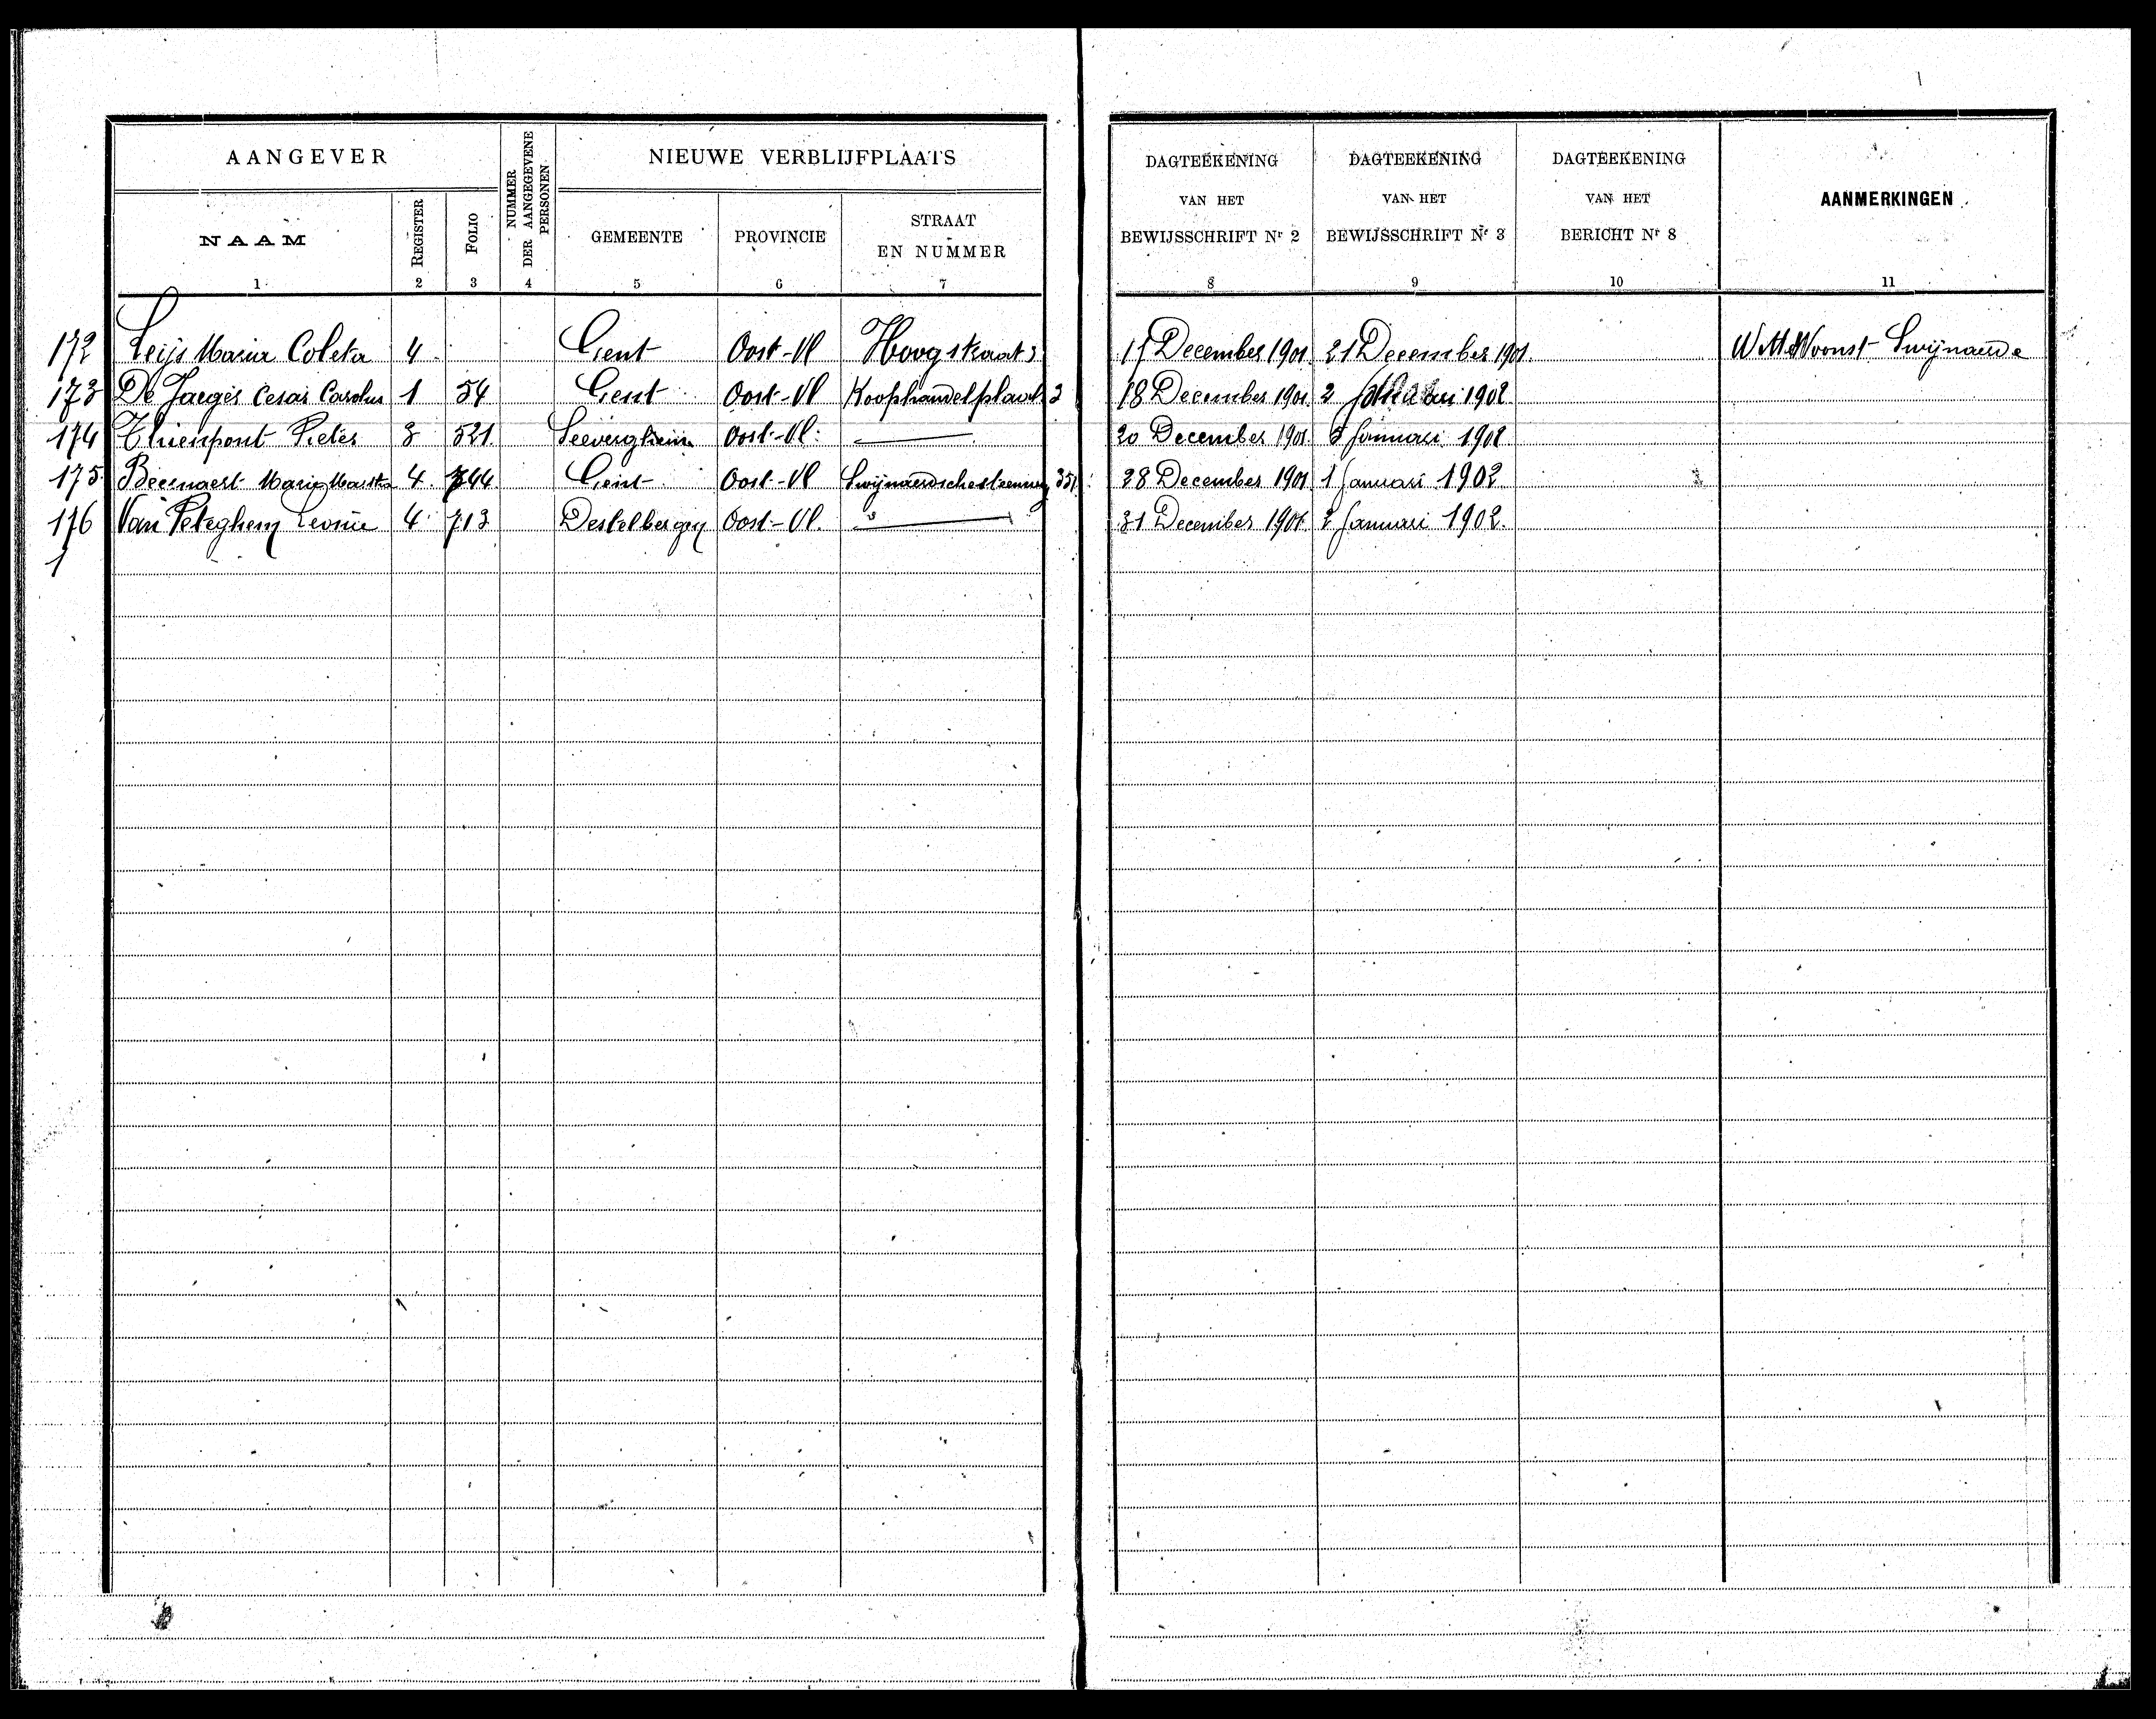 AANGEVER
NUMMER DER AANGEGEVENE PERSONEN
NIEUWE VERBLIJFPLAATS
DAGTEEKENING VAN HET BEWIJSSCHRIFT Nr 2
DAGTEEKENING VAN HET BEWIJSSCHRIFT Nr 3
DAGTEEKENING VAN HET BERICHT Nr 8
AANMERKINGEN
NAAM REGISTER FOLIO GEMEENTE PROVINCIE STRAAT EN NUMMER
1 2 3 4 5 6 7 8 9 10 11
172 Leijs Maria Coleta 4 Gent Oost-Vl Hoogstraat 17 December 1901 21 December 1901 Woonst Swijnaarde
173 De Jaeger Cesar Carolus 1 54 Gent Oost-Vl Koophandelplaats 2 18 December 1901 2 1902
174 Thienpont Pieter 3 521 Seeverghem Oost-Vl. 20 December 1901 Januari 1902
175 Beernaert Maria 4 744 Gent Oost-Vl Swijnaerdschesteenweg 28 December 1901 1 Januari 1902
176 Van Peteghem Leonie 4 713 Destelbergen Oost-Vl. 31 December 1901 2 Januari 1902.
1